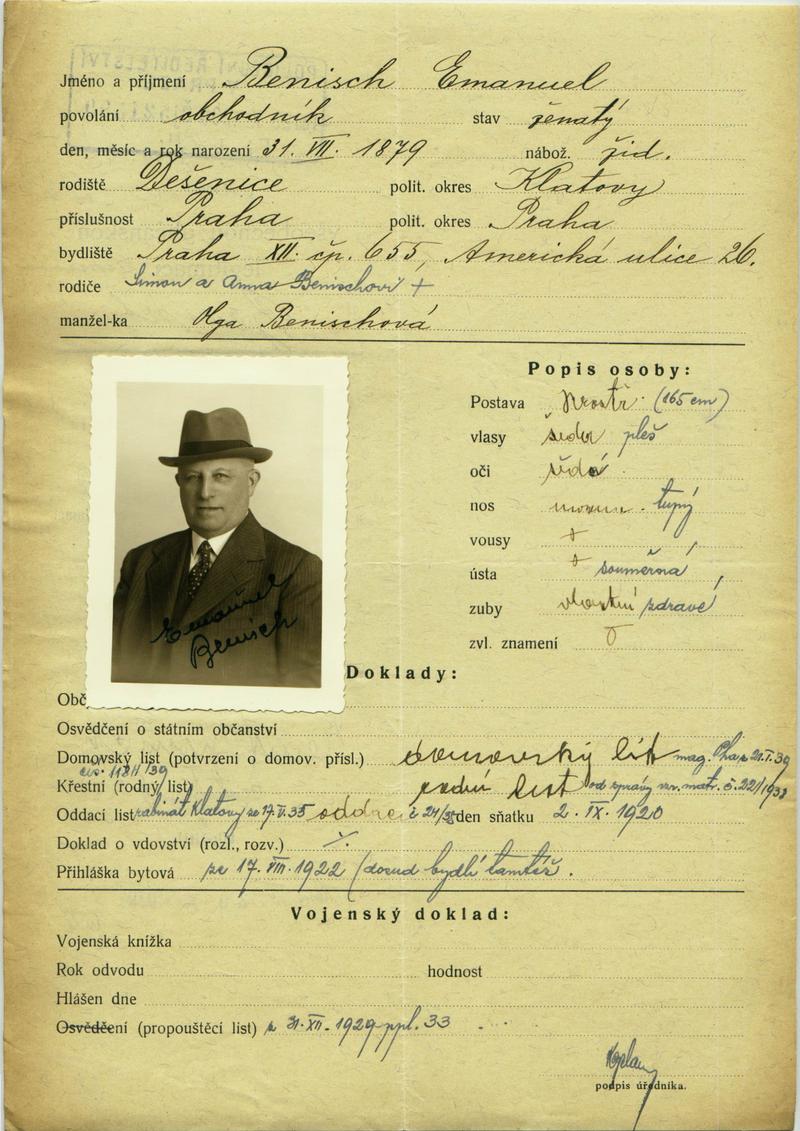 Jméno a příjmení Benisch Emanuel
povolání obchodník stav ženatý
den, měsíc a rok narození 31. VII. 1879 nábož. žid.
rodiště Dešenice polit. okres Klatovy
příslušnost Praha polit. okres Praha
bydliště Praha XII. čp. 655, Americká ulice 26.
rodiče Simon a Anna Benischovi +
manžel-ka Olga Benischová
Popis osoby:
Postava (165 cm)
vlasy pleš
oči šedé
nos tupý
vousy
ústa souměrná
zuby vlastní zdravé
zvl. znamení
Emanuel
Benisch
Doklady:
Obč
Osvědčení o státním občanství
Domovský list (potvrzení o domov. přísl.) domovský list mag. Praha
Křestní (rodný list) rodný list od správy č. 22/1933
Oddací list rabinát Klatovy ze 17. V. 35 č 24/35 den sňatku 2. IX. 1920
Doklad o vdovství (rozl., rozv.)
Přihláška bytová ze 17. VIII. 1922 (dosud bydlí tamtéž.
Vojenský doklad:
Vojenská knížka
Rok odvodu hodnost
Hlášen dne
Osvědčení (propouštěcí list) z 31. XII. 1929 ppl. 33
podpis úředníka.